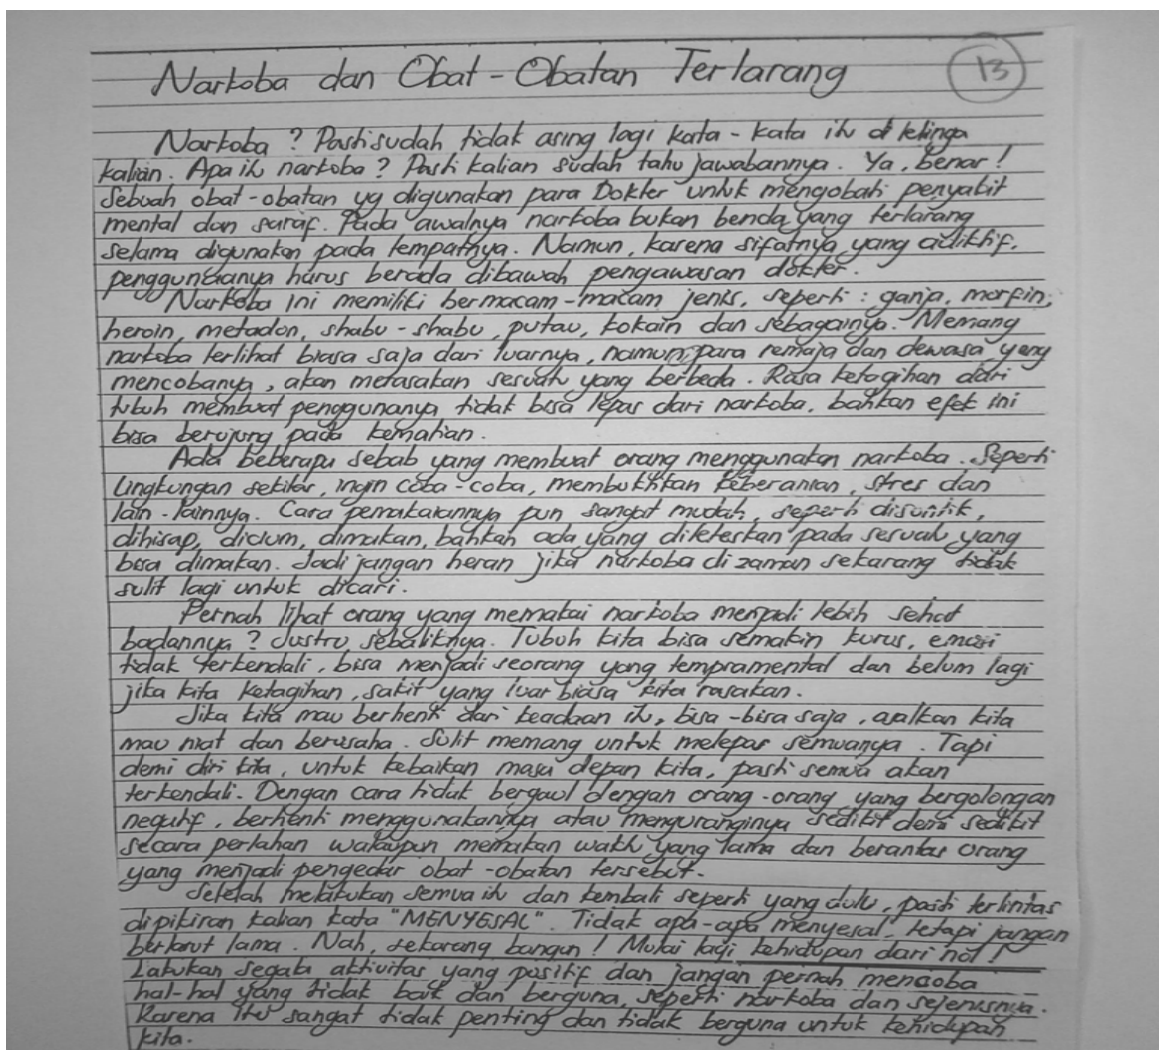 Narkoba dan Obat - Obatan Terlarang
13
Narkoba ? Pasti sudah tidak asing lagi kata - kata itu di telinga
kalian. Apa itu narkoba ? Pasti kalian sudah tahu jawabannya. Ya, benar !
Sebuah obat - obatan yg digunakan para Dokter untuk mengobati penyakit
mental dan saraf. Pada awalnya narkoba bukan benda yang terlarang
selama digunakan pada tempatnya. Namun, karena sifatnya yang adiktif,
penggunaanya harus berada dibawah pengawasan dokter.
Narkoba ini memiliki bermacam - macam jenis, seperti : ganja, morfin,
heroin, metadon, shabu - shabu, putau, kokain dan sebagainya. Memang
narkoba terlihat biasa saja dari luarnya, namun para remaja dan dewasa yang
mencobanya, akan merasakan sesuatu yang berbeda. Rasa ketagihan dari
tubuh membuat penggunanya tidak bisa lepas dari narkoba, bahkan efek ini
bisa berujung pada kematian.
Ada beberapa sebab yang membuat orang menggunakan narkoba. Seperti
lingkungan sekitar, ingin coba - coba, membuktikan keberanian, stres dan
lain - lainnya. Cara pemakaiannya pun sangat mudah, seperti disuntik,
dihisap, dicium, dimakan, bahkan ada yang diteteskan pada sesuatu yang
bisa dimakan. Jadi jangan heran jika narkoba di zaman sekarang tidak
sulit lagi untuk dicari.
Pernah lihat orang yang memakai narkoba menjadi lebih sehat
badannya ? Justru sebaliknya. Tubuh kita bisa semakin kurus, emosi
tidak terkendali, bisa menjadi seorang yang tempramental dan belum lagi
jika kita ketagihan, sakit yang luar biasa kita rasakan.
Jika kita mau berhenti dari keadaan itu, bisa - bisa saja, asalkan kita
mau niat dan berusaha. Sulit memang untuk melepas semuanya. Tapi
demi diri kita, untuk kebaikan masa depan kita, pasti semua akan
terkendali. Dengan cara tidak bergaul dengan orang - orang yang bergolongan
negatif, berhenti menggunakannya atau menguranginya sedikit demi sedikit
secara perlahan walaupun memakan waktu yang lama dan berantas orang
yang menjadi pengedar obat - obatan tersebut.
Setelah melakukan semua itu dan kembali seperti yang dulu, pasti terlintas
dipikiran kalian kata "MENYESAL". Tidak apa - apa menyesal, tetapi jangan
berlarut lama. Nah, sekarang bangun ! Mulai lagi kehidupan dari nol !
Lakukan segala aktivitas yang positif dan jangan pernah mencoba
hal - hal yang tidak baik dan berguna, seperti narkoba dan sejenisnya.
Karena itu sangat tidak penting dan tidak berguna untuk kehidupan
kita.